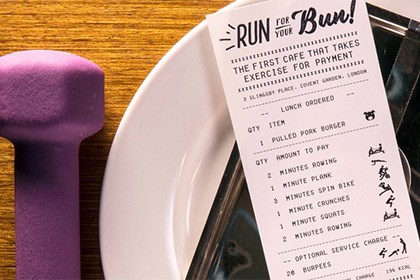 RUN FOR YOUR Bun!
THE FIRST CAFE THAT TAKES
EXERCISE FOR PAYMENT
3 SLINGSBY PLACE, COVENT GARDEN, LONDON
-- LUNCH ORDERED --
QTY ITEM
1 PULLED PORK BURGER
QTY AMOUNT TO PAY
2 MINUTES ROWING
1 MINUTE PLANK
3 MINUTES SPIN BIKE
1 MINUTE CRUNCHES
1 MINUTE SQUATS
2 MINUTES ROWING
-- OPTIONAL SERVICE CHARGE --
20 BURPEES
196 KCAL